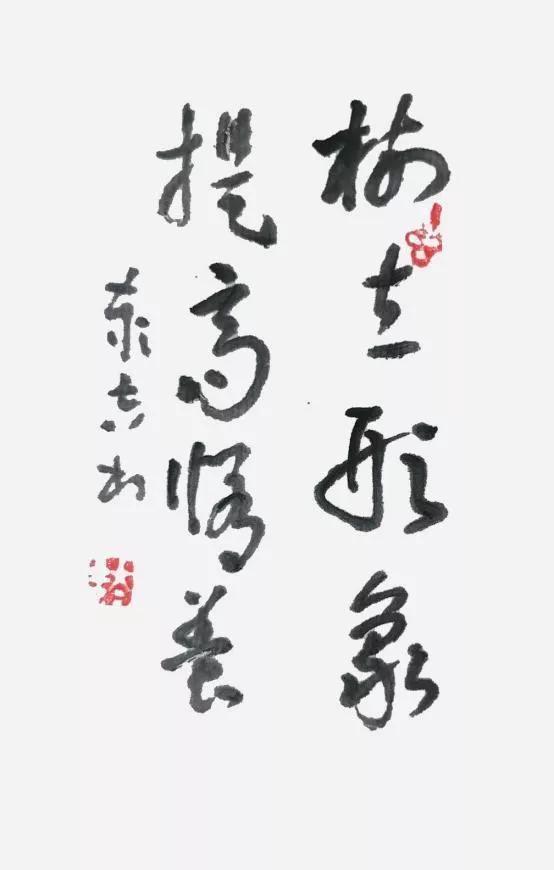 树立形象
提高修养
泰吉书